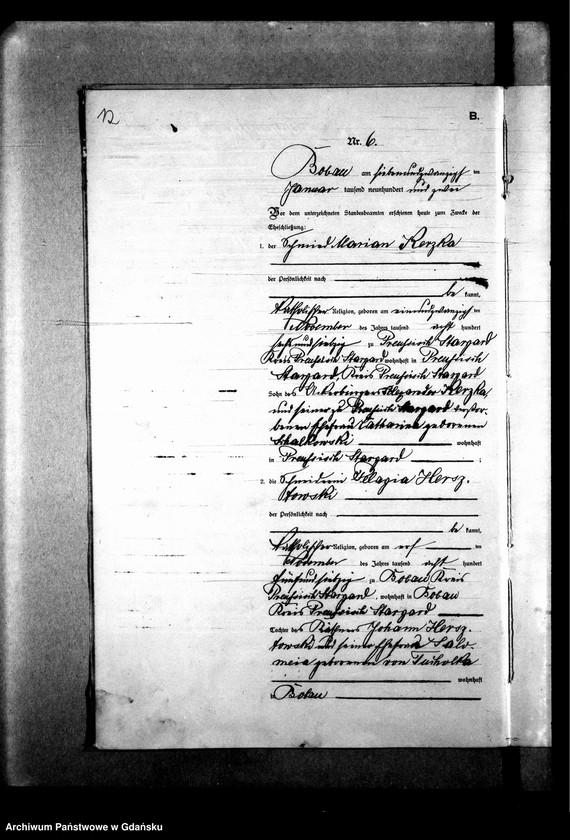 12
B.
Nr. 6.
Bobau am siebenundzwanzigsten
Januar tausend neunhundert und zwei
Vor dem unterzeichneten Standesbeamten erschienen heute zum Zwecke der
Eheschließung:
1. der Schmied Marian Kerzka
der Persönlichkeit nach
be kannt,
katholischer Religion, geboren am einundzwanzigsten
November des Jahres tausend acht hundert
sechsundsiebzig zu Preußisch Stargard
Kreis Preußisch Stargard wohnhaft in Preußisch
Stargard, Kreis Preußisch Stargard
Sohn des Ackerbürgers Alexander Kerzka
und seiner zu Preußisch Stargard verstor-
benen Ehefrau Catharina geborenen
wohnhaft
in Preußisch Stargard ;
2. die Schneiderin Pelagia Hersz-
towski
der Persönlichkeit nach
be kannt,
katholischer Religion, geboren am elf ten
November des Jahres tausend acht hundert
fünfundsiebzig zu Bobau Kreis
Preußisch Stargard, wohnhaft in Bobau
Kreis Preußisch Stargard
Tochter des Käthners Johann Hersz-
towski und seiner Ehefrau Salo-
meia geborenen von Tucholka
wohnhaft
in Bobau
Archiwum Państwowe w Gdańsku